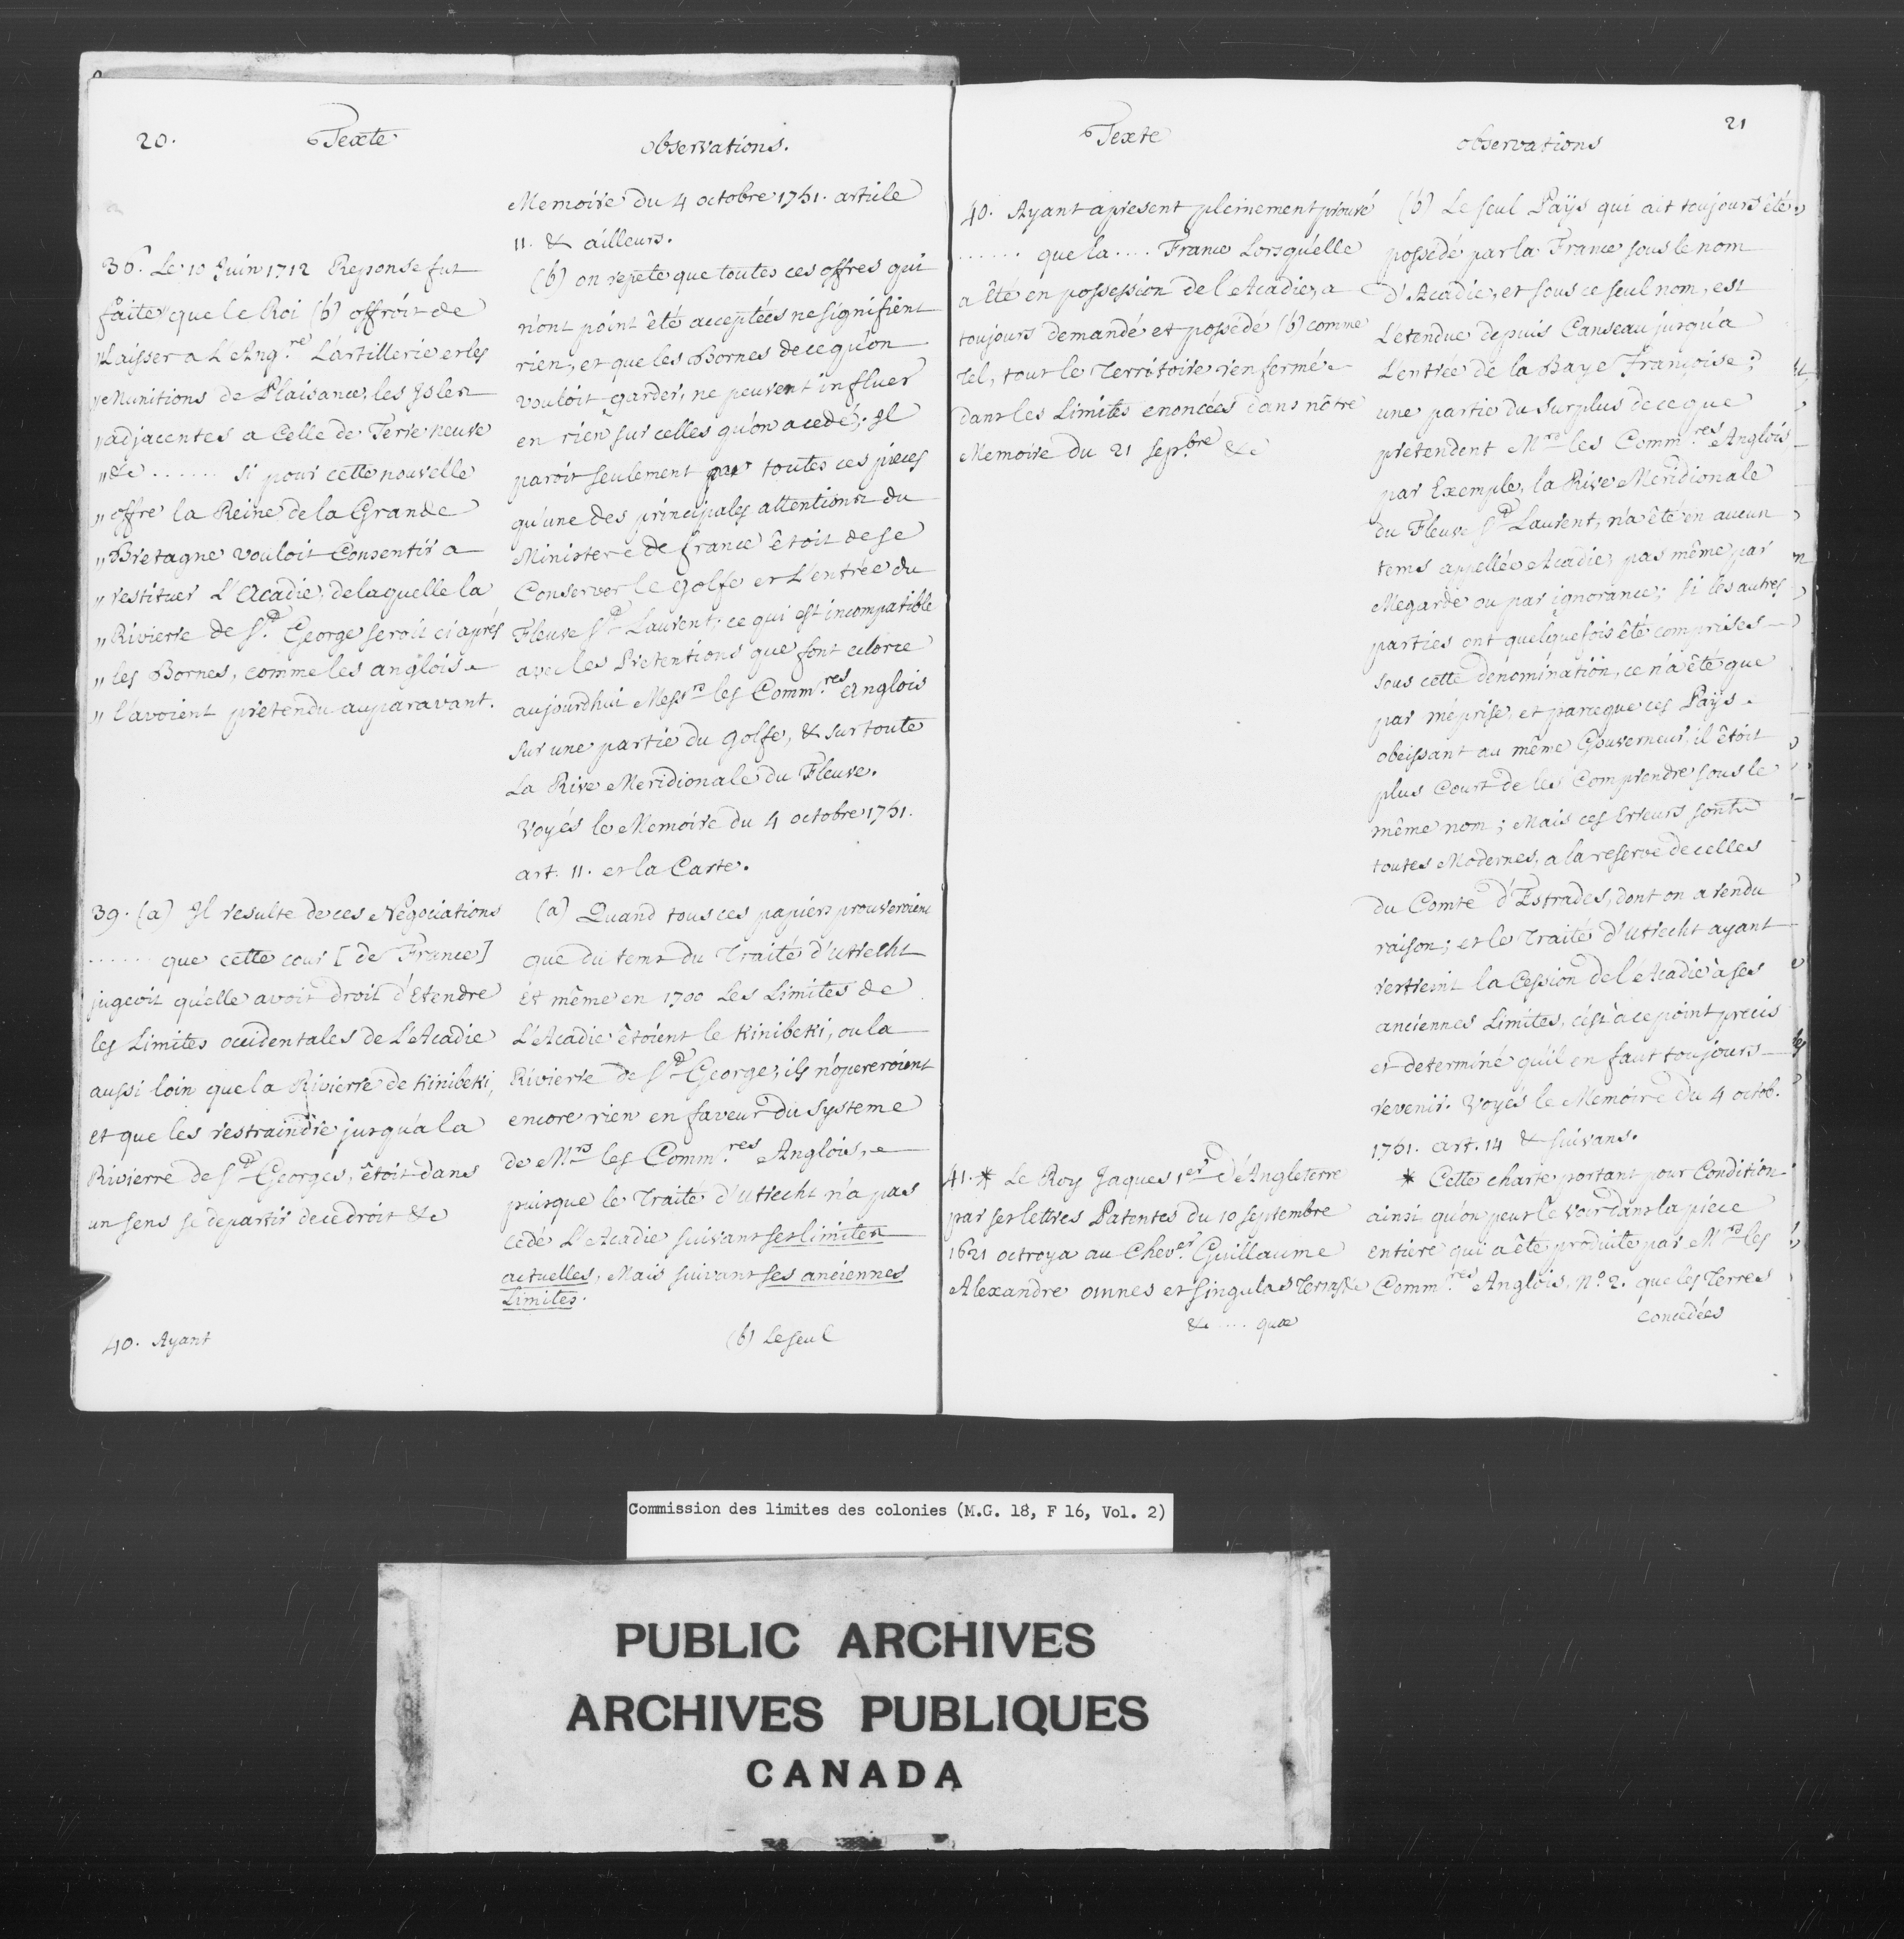 20.
Texte
observations.
Memoire du 4 octobre 1751. article
11. & ailleurs.
36.° Le 10 Juin 1712 Reponse fut
faite que le Roi (b) offroit de
"Laisser a L'Ang.re L'artillerie et les
"Munitions de Plaisance, les Isles
"adjacentes a Celle de Terre neuve
"&c ...... si pour cette nouvelle
"offre la Reine de la Grande
"Bretagne vouloit Consentir a
"restituer L'Acadie, de laquelle la
"Rivierre de St. George seroit ci aprés
"les Bornes, comme les anglois
"l'avoient pretendu auparavant.
(b) on repete que toutes ces offres qui
n'ont point êté acceptées ne signifient
rien, et que les Bornes de ce qu'on
vouloit garder, ne peuvent influer
en rien sur celles qu'on a cedé; Il
paroit seulement par toutes ces pieces
qu'une des principales attentions du
Ministere de france êtoit de se
Conserver le golfe et L'entrée du
Fleuve St Laurent; ce qui est incompatible
avec les Pretentions que font eclorre
aujourdhui Messrs les Comm.res Anglois
sur une partie du Golfe, & sur toute
La Rive Meridionale du Fleuve.
Voyés le Memoire du 4 octobre 1751.
art. 11. et la Carte.
39. (a) Il resulte de ces Negociations
...... que cette cour [de France]
jugeoit qu'elle avoit droit d'Etendre
les Limites occidentales de L'Acadie
aussi loin que la Rivierre de Kinibeki,
et que les restraindre jusqu'a la
Rivierre de St Georges, êtoit dans
un sens se departir de ce droit &c
(a) Quand tous ces papiers prouveroient
que du tems du Traité d'Utrecht
Et même en 1700 Les Limites de
L'Acadie êtoient le Kinibeki, ou la
Rivierre de St George, ils n'opereroient
encore rien en faveur du Systeme
de Mrs les Comm.res Anglois,
puisque le Traité d'Utrecht n'a pas
cedé L'Acadie suivant ses limites
actuelles, Mais suivant ses anciennes
Limites.
40. Ayant
(b) Le seul
21
Texte
observations
40. Ayant apresent pleinement prouvé
...... que la .... France Lorsqu'elle
a êté en possession de l'Acadie, a
toujours demandé et possedé (b) comme
tel, tout le Territoire renfermé
dans les Limites enoncées dans nôtre
Memoire du 21 sepbre &c
(b) Le seul Païs qui ait toujours êté
possedé par la France sous le nom
d'Acadie, et sous ce seul nom, est
L'etendue depuis Canseau jusqu'a
L'entrée de la Baye Françoise;
une partie du Surplus de ce que
pretendent Mrs les Comm.res Anglois,
par Exemple, la Rive Meridionale
du Fleuve St Laurent, n'a êté en aucun
tems appellée Acadie, pas même par
Megarde ou par ignorance; si les autres
parties ont quelquefois êté comprises
sous cette dénomination, ce n'a êté que
par méprise, et parceque ces Païs
obeissant au même Gouverneur, il êtoit
plus Court de les Comprendre sous le
même nom; Mais ces Erreurs sont
toutes Modernes, a la reserve de celles
du Comte d'Estrades, dont on a rendu
raison; et le Traité d'Utrecht ayant
restreint la Cession de l'Acadie à ses
anciennes Limites, c'est à ce point precis
et determiné qu'il en faut toujours
revenir. Voyés le Memoire du 4 octob.
1751. art. 14 & suivans.
41. * Le Roy Jaques 1er d'Angleterre
par ses lettres Patentes du 10 septembre
1621 octroya au Chever Guillaume
Alexandre omnes et singulas Terras &c
&c .... quæ
* Cette charte portant pour Condition
ainsi qu'on peut le voir dans la piece
entiere qui a êté produite par Mrs les
Comm.res Anglois, N.° 2. que les Terres
Concedées
Commission des limites des colonies (M.G. 18, F 16, Vol. 2)
PUBLIC ARCHIVES
ARCHIVES PUBLIQUES
CANADA